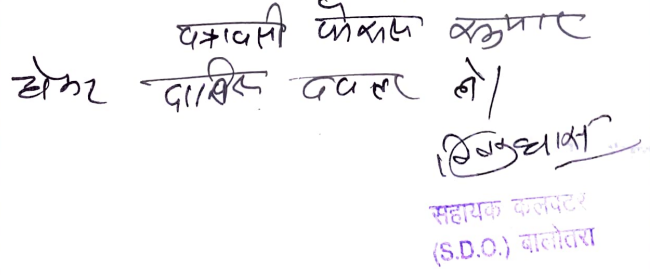 पत्रावली फैसल शुमार
होकर दाखिल दफ्तर हो।
सहायक कलक्टर
(S.D.O.) बालोतरा